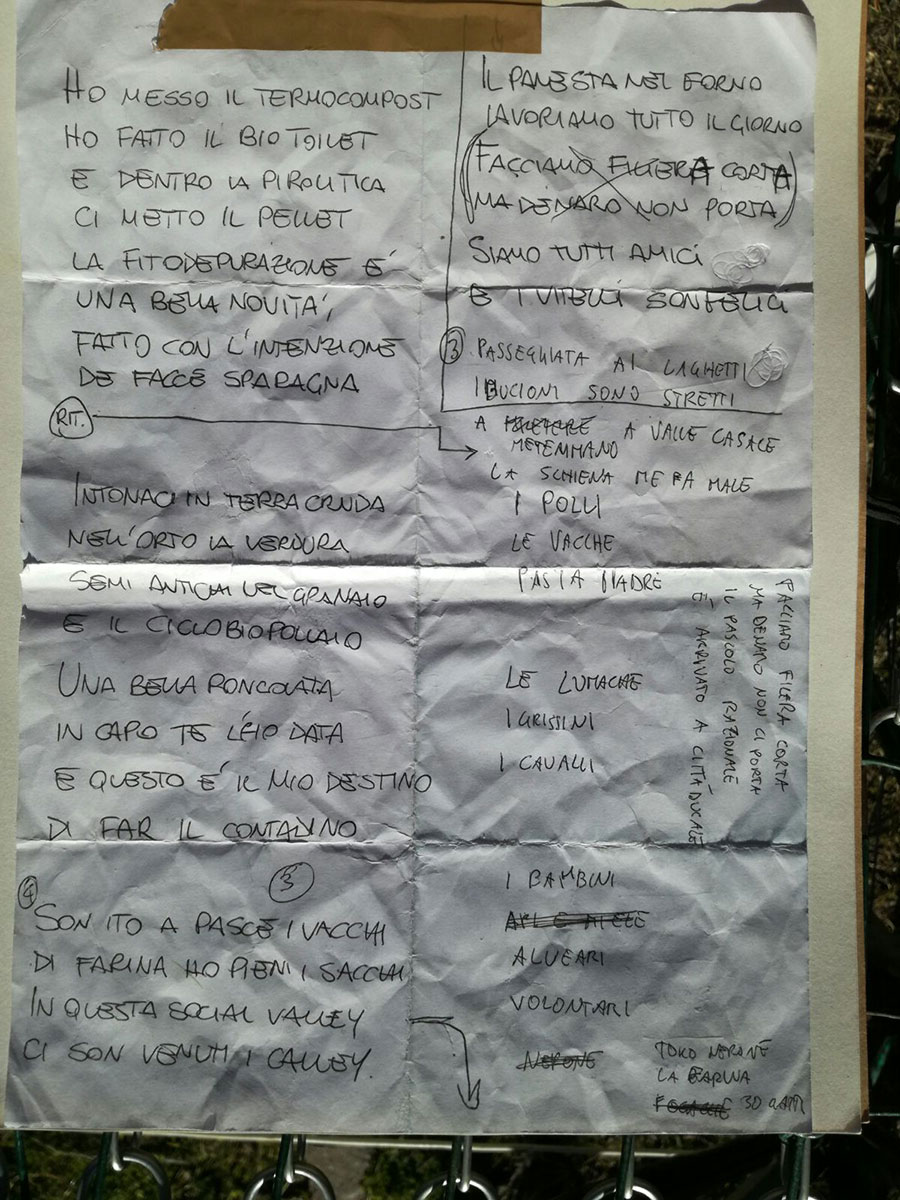 HO MESSO IL TERMOCOMPOST
HO FATTO IL BIO TOILET
E DENTRO LA PIROLITICA
CI METTO IL PELLET
LA FITODEPURAZIONE E'
UNA BELLA NOVITA',
FATTO CON L'INTENZIONE
DE FACCE SPARAGNA
RIT.
INTONACI IN TERRA CRUDA
NELL'ORTO LA VERDURA
SEMI ANTICHI NEL GRANAIO
E IL CICLOBIOPOLLAIO
UNA BELLA RONCOLATA
IN CAPO TE L'EIO DATA
E QUESTO E' IL MIO DESTINO
DI FAR IL CONTADINO
5
4
SON ITO A PASCE I VACCHI
DI FARINA HO PIENI I SACCHI
IN QUESTA SOCIAL VALLEY
CI SON VENUTI I CALLEY
IL PANE STA NEL FORNO
LAVORIAMO TUTTO IL GIORNO
(FACCIAMO FILIERA CORTA
MA DENARO NON PORTA)
SIAMO TUTTI AMICI
E I VITELLI SON FELICI
3 PASSEGGIATA AI LAGHETTI
I BUCIONI SONO STRETTI
A METEMMANO A VALLE CASALE
LA SCHIENA ME FA MALE
I POLLI
LE VACCHE
PASTA MADRE
LE LUMACHE
I GRISSINI
I CAVALLI
I BAMBINI
ALVEARI
VOLONTARI
NERONE
TORO NERONE
LA FARINA
FOCACCE 30
FACCIAMO FILIERA CORTA
MA DENARO NON CI PORTA
IL PASCOLO RAZIONALE
E' ARRIVATO A CITTADUCALE